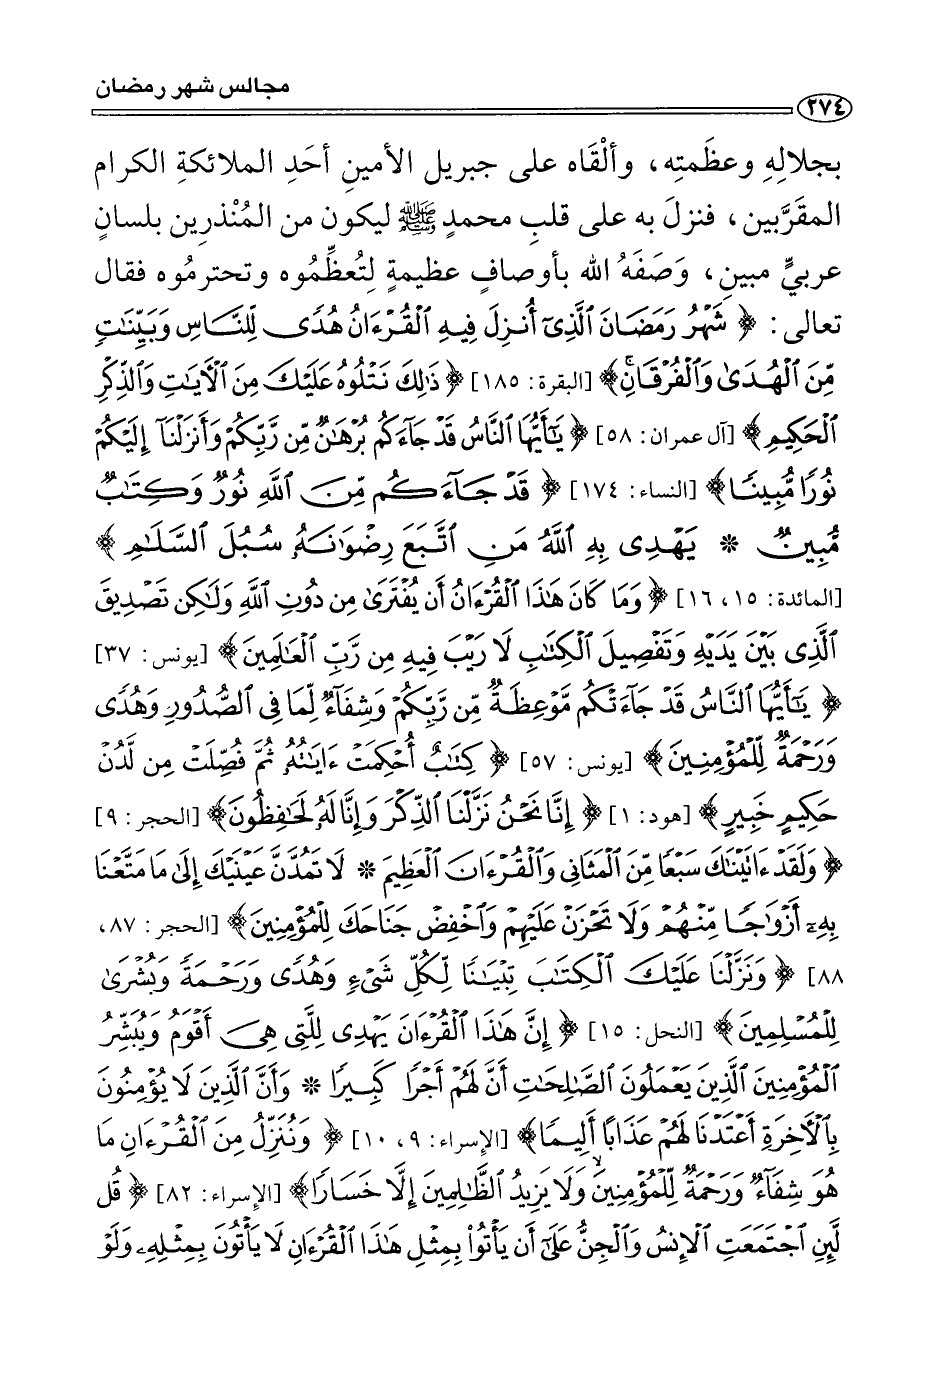 مجالس شهر رمضان
٢٧٤
بجلالِهِ وعظَمتِه، وألْقَاه على جبريل الأمينِ أحَدِ الملائكةِ الكرام
المقرَّبين، فنزلَ به على قلبِ محمدٍ ﷺ ليكون من المُنْذرِين بلسانٍ
عربيٍّ مبينٍ، وَصَفَهُ الله بأوصافٍ عظيمةٍ لتُعظِّمُوه وتحترمُوه فقال
تعالى: ﴿ شَهْرُ رَمَضَانَ ٱلَّذِىٓ أُنزِلَ فِيهِ ٱلْقُرْءَانُ هُدًى لِّلنَّاسِ وَبَيِّنَٰتٍ
مِّنَ ٱلْهُدَىٰ وَٱلْفُرْقَانِۚ﴾ [البقرة: ١٨٥] ﴿ ذَٰلِكَ نَتْلُوهُ عَلَيْكَ مِنَ ٱلْءَايَٰتِ وَٱلذِّكْرِ
ٱلْحَكِيمِ﴾ [آل عمران: ٥٨] ﴿ يَٰٓأَيُّهَا ٱلنَّاسُ قَدْ جَآءَكُم بُرْهَٰنٌ مِّن رَّبِّكُمْ وَأَنزَلْنَآ إِلَيْكُمْ
نُورًا مُّبِينًا﴾ [النساء: ١٧٤] ﴿ قَدْ جَآءَكُم مِّنَ ٱللَّهِ نُورٌ وَكِتَٰبٌ
مُّبِينٌ * يَهْدِى بِهِ ٱللَّهُ مَنِ ٱتَّبَعَ رِضْوَٰنَهُۥ سُبُلَ ٱلسَّلَٰمِ ﴾
[المائدة: ١٥، ١٦] ﴿ وَمَا كَانَ هَٰذَا ٱلْقُرْءَانُ أَن يُفْتَرَىٰ مِن دُونِ ٱللَّهِ وَلَٰكِن تَصْدِيقَ
ٱلَّذِى بَيْنَ يَدَيْهِ وَتَفْصِيلَ ٱلْكِتَٰبِ لَا رَيْبَ فِيهِ مِن رَّبِّ ٱلْعَٰلَمِينَ﴾ [يونس: ٣٧]
﴿ يَٰٓأَيُّهَا ٱلنَّاسُ قَدْ جَآءَتْكُم مَّوْعِظَةٌ مِّن رَّبِّكُمْ وَشِفَآءٌ لِّمَا فِى ٱلصُّدُورِ وَهُدًى
وَرَحْمَةٌ لِّلْمُؤْمِنِينَ﴾ [يونس: ٥٧] ﴿ كِتَٰبٌ أُحْكِمَتْ ءَايَٰتُهُۥ ثُمَّ فُصِّلَتْ مِن لَّدُنْ
حَكِيمٍ خَبِيرٍ﴾ [هود: ١] ﴿ إِنَّا نَحْنُ نَزَّلْنَا ٱلذِّكْرَ وَإِنَّا لَهُۥ لَحَٰفِظُونَ﴾ [الحجر: ٩]
﴿ وَلَقَدْ ءَاتَيْنَٰكَ سَبْعًا مِّنَ ٱلْمَثَانِى وَٱلْقُرْءَانَ ٱلْعَظِيمَ * لَا تَمُدَّنَّ عَيْنَيْكَ إِلَىٰ مَا مَتَّعْنَا
بِهِۦٓ أَزْوَٰجًا مِّنْهُمْ وَلَا تَحْزَنْ عَلَيْهِمْ وَٱخْفِضْ جَنَاحَكَ لِلْمُؤْمِنِينَ﴾ [الحجر: ٨٧،
٨٨] ﴿ وَنَزَّلْنَا عَلَيْكَ ٱلْكِتَٰبَ تِبْيَٰنًا لِّكُلِّ شَىْءٍ وَهُدًى وَرَحْمَةً وَبُشْرَىٰ
لِلْمُسْلِمِينَ﴾ [النحل: ١٥] ﴿ إِنَّ هَٰذَا ٱلْقُرْءَانَ يَهْدِى لِلَّتِى هِىَ أَقْوَمُ وَيُبَشِّرُ
ٱلْمُؤْمِنِينَ ٱلَّذِينَ يَعْمَلُونَ ٱلصَّٰلِحَٰتِ أَنَّ لَهُمْ أَجْرًا كَبِيرًا * وَأَنَّ ٱلَّذِينَ لَا يُؤْمِنُونَ
بِٱلْءَاخِرَةِ أَعْتَدْنَا لَهُمْ عَذَابًا أَلِيمًا﴾ [الإسراء: ٩، ١٠] ﴿ وَنُنَزِّلُ مِنَ ٱلْقُرْءَانِ مَا
هُوَ شِفَآءٌ وَرَحْمَةٌ لِّلْمُؤْمِنِينَۙ وَلَا يَزِيدُ ٱلظَّٰلِمِينَ إِلَّا خَسَارًا﴾ [الإسراء: ٨٢] ﴿ قُل
لَّئِنِ ٱجْتَمَعَتِ ٱلْإِنسُ وَٱلْجِنُّ عَلَىٰٓ أَن يَأْتُوا۟ بِمِثْلِ هَٰذَا ٱلْقُرْءَانِ لَا يَأْتُونَ بِمِثْلِهِۦ وَلَوْ